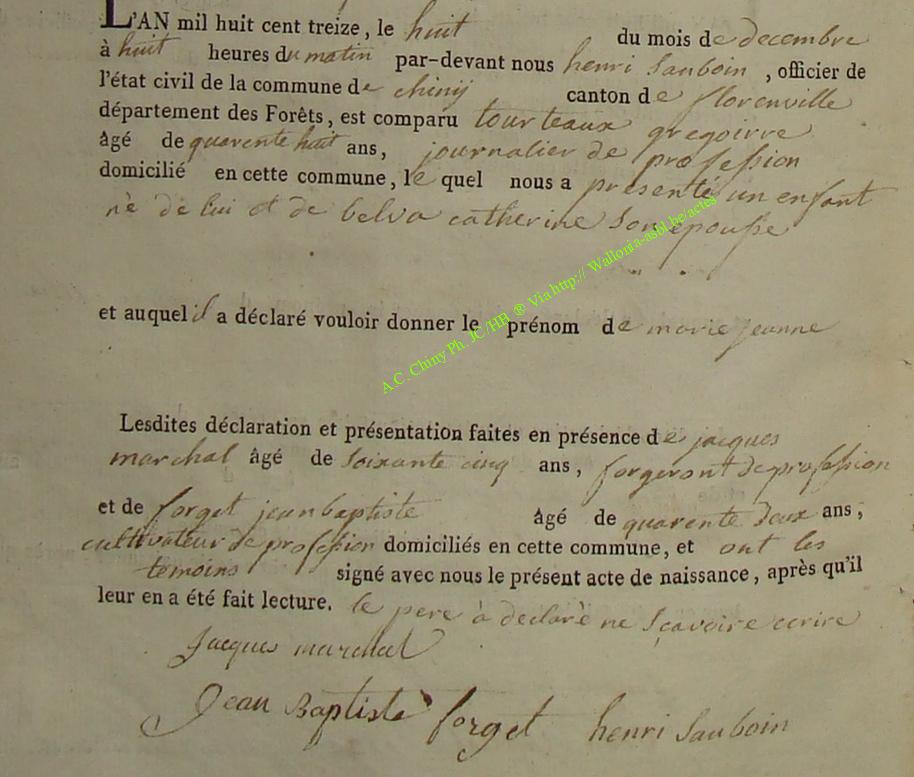 L'AN mil huit cent treize, le huit du mois de decembre
à huit heures du matin par-devant nous henri Sauboin, officier de
l'état civil de la commune de chinÿ canton de florenville
département des Forêts, est comparu tourteaux gregoirre
âgé de quarente huit ans, journalier de profession
domicilié en cette commune, le quel nous a presenté un enfant
nè de lui et de belva catherine son epousse
et auquel il a déclaré vouloir donner le prénom de marie jeanne
Lesdites déclaration et présentation faites en présence de jacques
marchal âgé de soixante cinq ans, forgeront de profession
et de forget jean baptiste âgé de quarente deux ans,
cultivateur de profession domiciliés en cette commune, et ont les
temoins signé avec nous le présent acte de naissance, après qu'il
leur en a été fait lecture. le pere à declarè ne sçavoire ecrire
Jacques marchal
Jean Baptiste forget henri Sauboin
A.C. Chiny Ph. JC/HB ® Via http:// Wallonia-asbl.be/actes